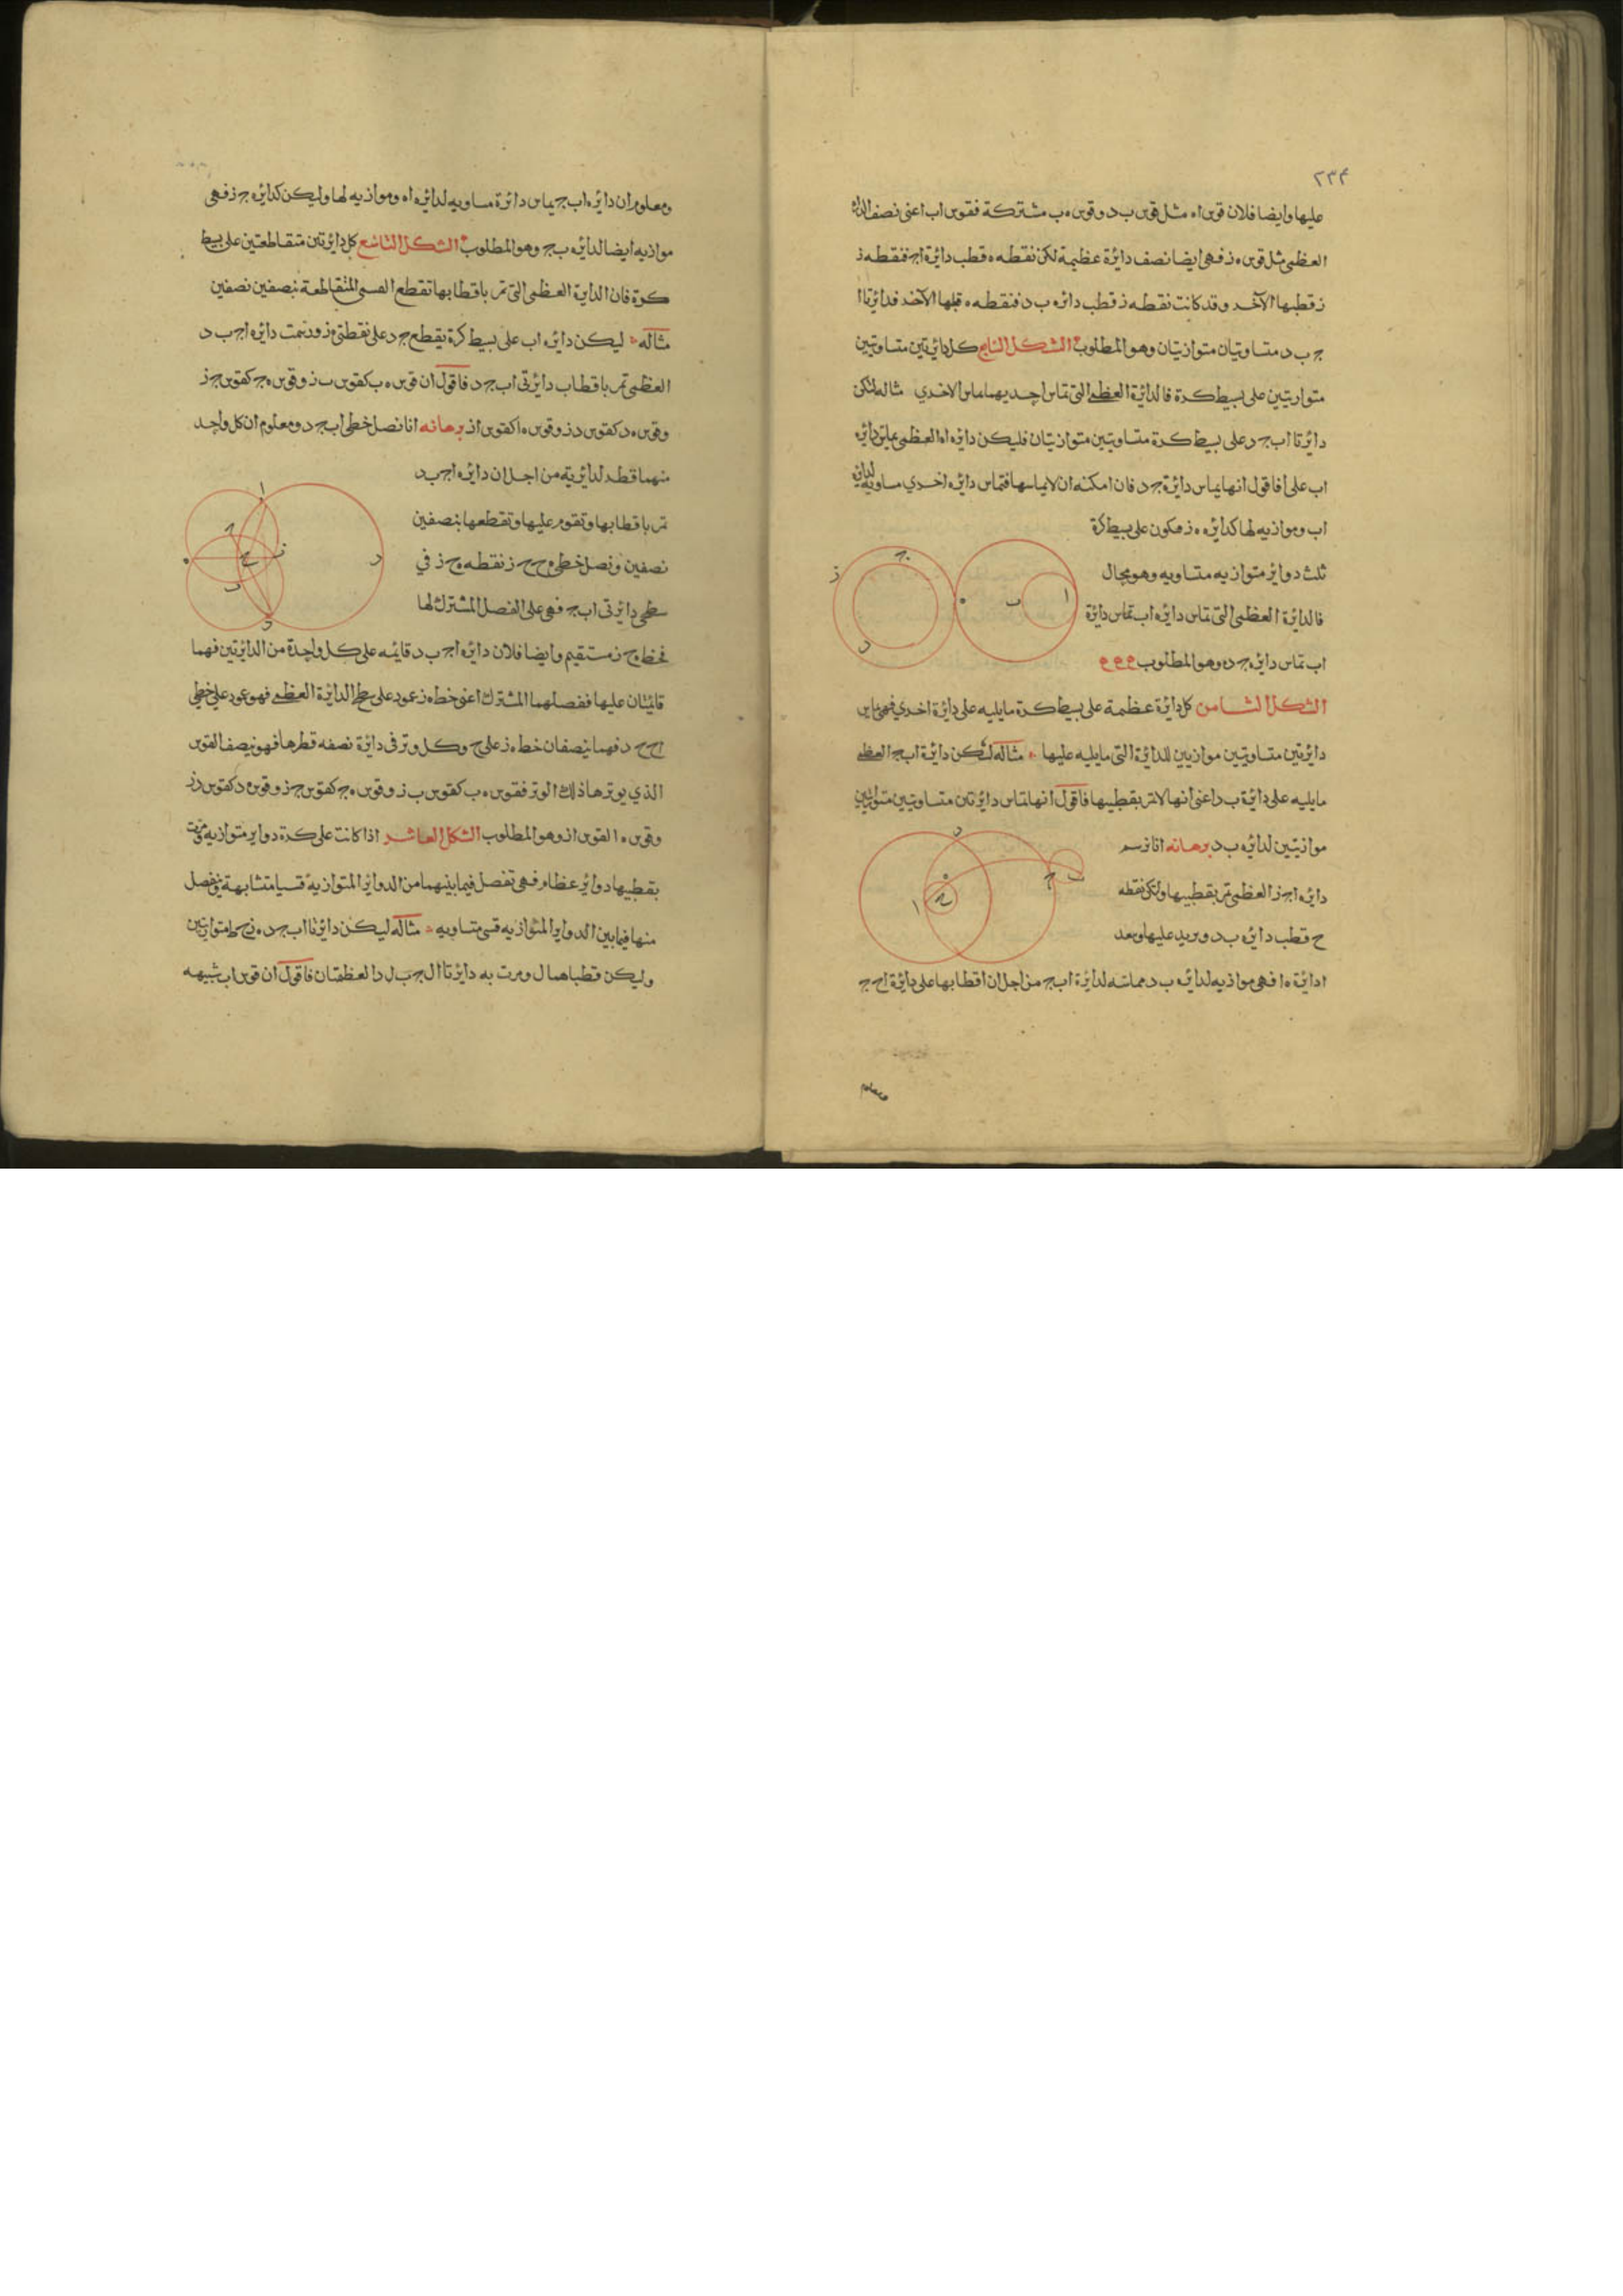 ٢٣٤
عليها وايضا فلان قوس اه مثل قوس ب د وقوس ه ب مشتركة فقوس اب اعنى نصف الدائرة
العظمى مثل قوس ه ز فهى ايضا نصف دائرة عظيمة لكن نقطه ه قطب دائرة اج فنقطه ز
ز قطبها الآخر وقد كانت نقطه ز قطب دائره ب د فنقطه ه قطبها الآخر فدائرتا ا
ج ب د متساويتان متوازيتان وهو المطلوب الشكل السابع كل دائرتين متساويتين
متوازيتين على بسيط كرة فالدائرة العظمى التى تماس احديهما تماس الاخري مثاله لتكن
دائرتا اب ج د على بسيط كرة متساويتين متوازيتان فليكن دائره اه العظمى تماس دائره
اب على ا فاقول انها تماس دائرة ج د فان امكنه ان لا يماسها فتماس دائره اخري مساويه لدائرة
اب وموازيه لها كدائره ه ز فيكون على بسيط كرة
ثلث دوائر متوازيه متساويه وهو محال
فالدائرة العظمى التى تماس دائره اب تماس دائرة
اب تماس دائره ج د وهو المطلوب
الشكل الثامن كل دائرة عظيمة على بسيط كرة مايليه على دائرة اخري فهى تماس
دائرتين متساويتين موازيين للدائرة التى مايليه عليها مثاله لتكن دائرة اب ج العظمى
مايليه على دائرة ب د اعنى انها لا تمر بقطبيها فاقول انها تماس دائرتين متساويتين متوازيتين
موازيتين لدائره ب د برهانه انا نرسم
دائره اج ز العظمى تمر بقطبيها ولتكن نقطه
ح قطب دائره ب د ونريد عليها وببعد
ا دائرة ه ا فهى موازيه لدائره ب د مماسه لدائرة اب ج من اجل ان اقطابها على دائرة اح ج
ومعلوم
ومعلوم ان دائره اب ج يماس دائرة مساويه لدائره اه وموازيه لها وليكن كدائره ج ز فهى
موازيه ايضا لدائره ب ج وهو المطلوب الشكل التاسع كل دائرتين متقاطعتين على بسيط
كرة فان الدائرة العظمى التى تمر باقطابها تقطع القسى المتقاطعة بنصفين نصفين
مثاله ليكن دائره اب على بسيط كرة يقطع ج د على نقطتى ه ز ورسمت دائره اج ب د
العظمى تمر باقطاب دائرتى اب ج د فاقول ان قوس ه ب كقوس ب ز وقوس ه ج كقوس ج ز
وقوس ه د كقوس د ز وقوس ه ا كقوس از برهانه انا نصل خطى اب ج د ومعلوم ان كل واحد
منهما قطر لدائرته من اجل ان دائره اج ب د
تمر باقطابها وتقوم عليها وتقطعها بنصفين
نصفين ونصل خطى ه ح ح ز نقطه ه ح ز في
سطحى دائرتى اب ج فهى على الفصل المشترك لها
فخط ه ح ز مستقيم وايضا فلان دائره اج ب د قائمه على كل واحدة من الدائرتين فهما
قائمتان عليها ففصلهما المشترك اعنى خط ه ز عمود على سطح الدائرة العظمى فهو عمود على خطى
اح ح د فهما ينصفان خط ه ز على ح وكل وتر فى دائرة نصفه قطرها فهو نصف القوس
الذي يوترها ذلك الوتر فقوس ه ب كقوس ب ز وقوس ه ج كقوس ج ز وقوس ه د كقوس د ز
وقوس ه ا لقوس از وهو المطلوب الشكل العاشر اذا كانت على كرة دواير متوازيه ومرت
بقطبيها دوائر عظام فهى تفصل فيما بينهما من الدوائر المتوازية قسيا متشابهة وتفصل
منها فيما بين الدواير المتوازيه قسى متساويه مثاله ليكن دائرتا اب ج د ه ز ح ط متوازيتين
وليكن قطباهما ل ومرت به دائرتا ال ج ب ل د العظمتان فاقول ان قوس اب شبيهه